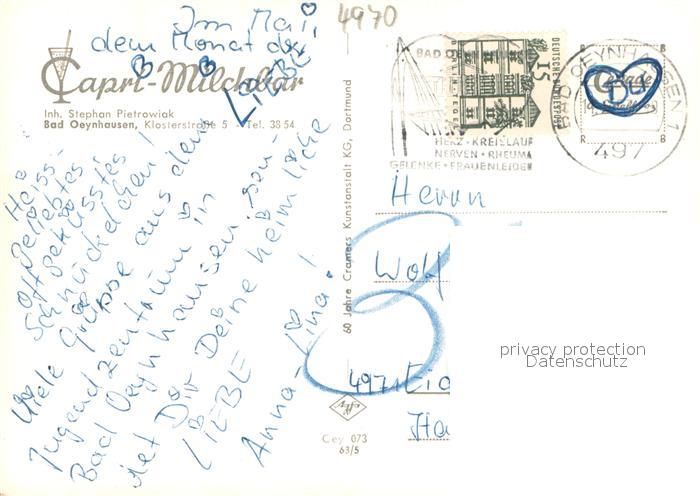 4970
Im Mai
dem Monat der
LIEBE
Capri-Milchbar
Inh. Stephan Pietrowiak
Bad Oeynhausen, Klosterstraße 5 - Tel. 38 54
Heiss-
geliebtes
oftgeküsstes
Schnuckelchen!
Viele Grüsse aus dem
Jugendzentrum in
Bad Oeynhausen
Dir Deine heimliche
LIEBE
Anna-Lina!
60 Jahre Cramers Kunstanstalt KG, Dortmund
Cey 073
63/5
BAD
HERZ · KREISLAUF
NERVEN · RHEUMA
GELENKE · FRAUENLEIDEN
15
DEUTSCHE BUNDESPOST
BERLIN-TEGEL
BAD OEYNHAUSEN 1
497
Du
Herrn
Wolf
4971
Ha
privacy protection
Datenschutz